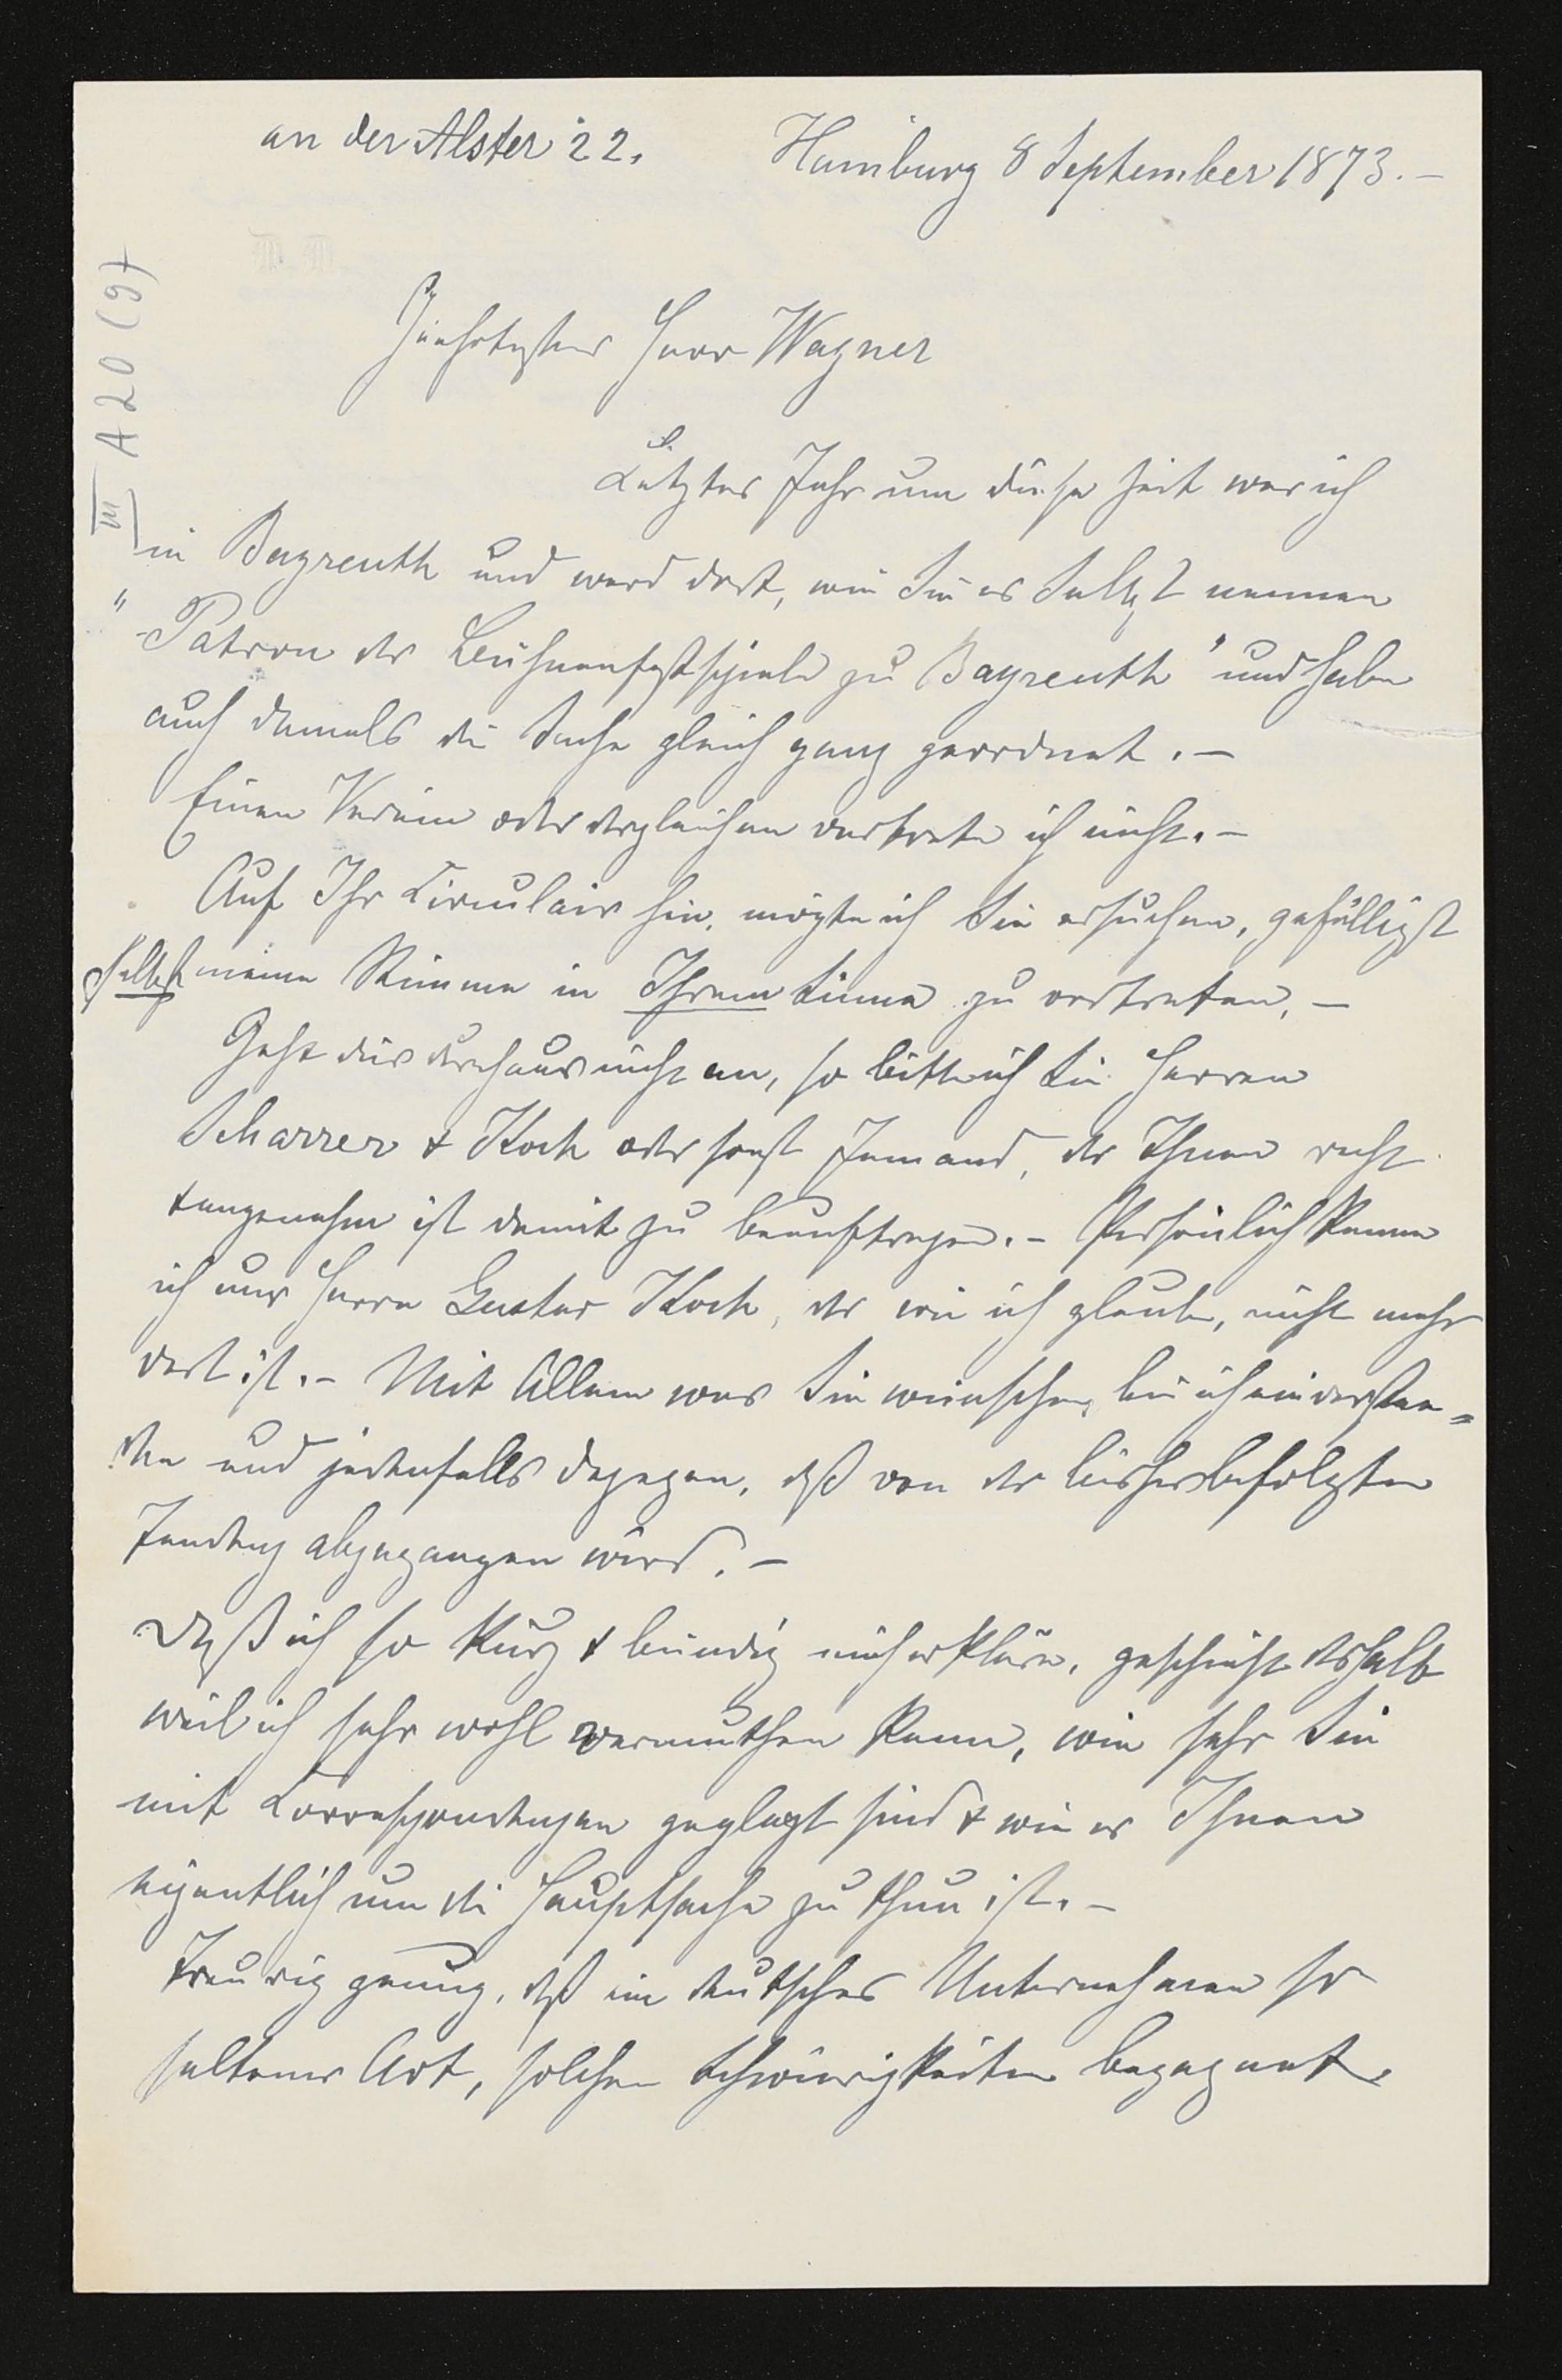 an der Alster 22. Hamburg 8 September 1873. –
III A 20 (9)
Geehrtester Herr Wagner
Letztes Jahr um diese Zeit war ich
in Bayreuth und ward dort, wie Sie es selbst nennen
"Patron der Bühnenfestspiele zu Bayreuth" und habe
auch damals die Sache gleich ganz geordnet. –
Einen Verein oder dergleichen vertrete ich nicht. –
Auf Ihr Circulair hin, mögte ich Sie ersuchen, gefälligst
selbst meine Stimme in Ihrem Sinne zu vertreten. –
Geht dies durchaus nicht an, so bitte ich Sie Herren
Scharrer & Koch oder sonst Jemand, der Ihnen recht
& angenehm ist damit zu beauftragen. – Persönlich kenne
ich nur Herrn Gustav Koch, der wie ich glaube, nicht mehr
dort ist. – Mit Allem was Sie wünschen, bin ich einverstan=
den und jedenfalls dagegen, daß von der bisher befolgten
Tendenz abgegangen wird. –
Daß ich so kurz & bündig mich erkläre, geschieht deshalb
weil ich sehr wohl vermuthen kann, wie sehr Sie
mit Correspondenzen geplagt sind & wie es Ihnen
eigentlich um die Hauptsache zu thun ist. –
Traurig genug, daß ein deutsches Unternehmen so
seltener Art, solchen Schwierigkeiten begegnet.